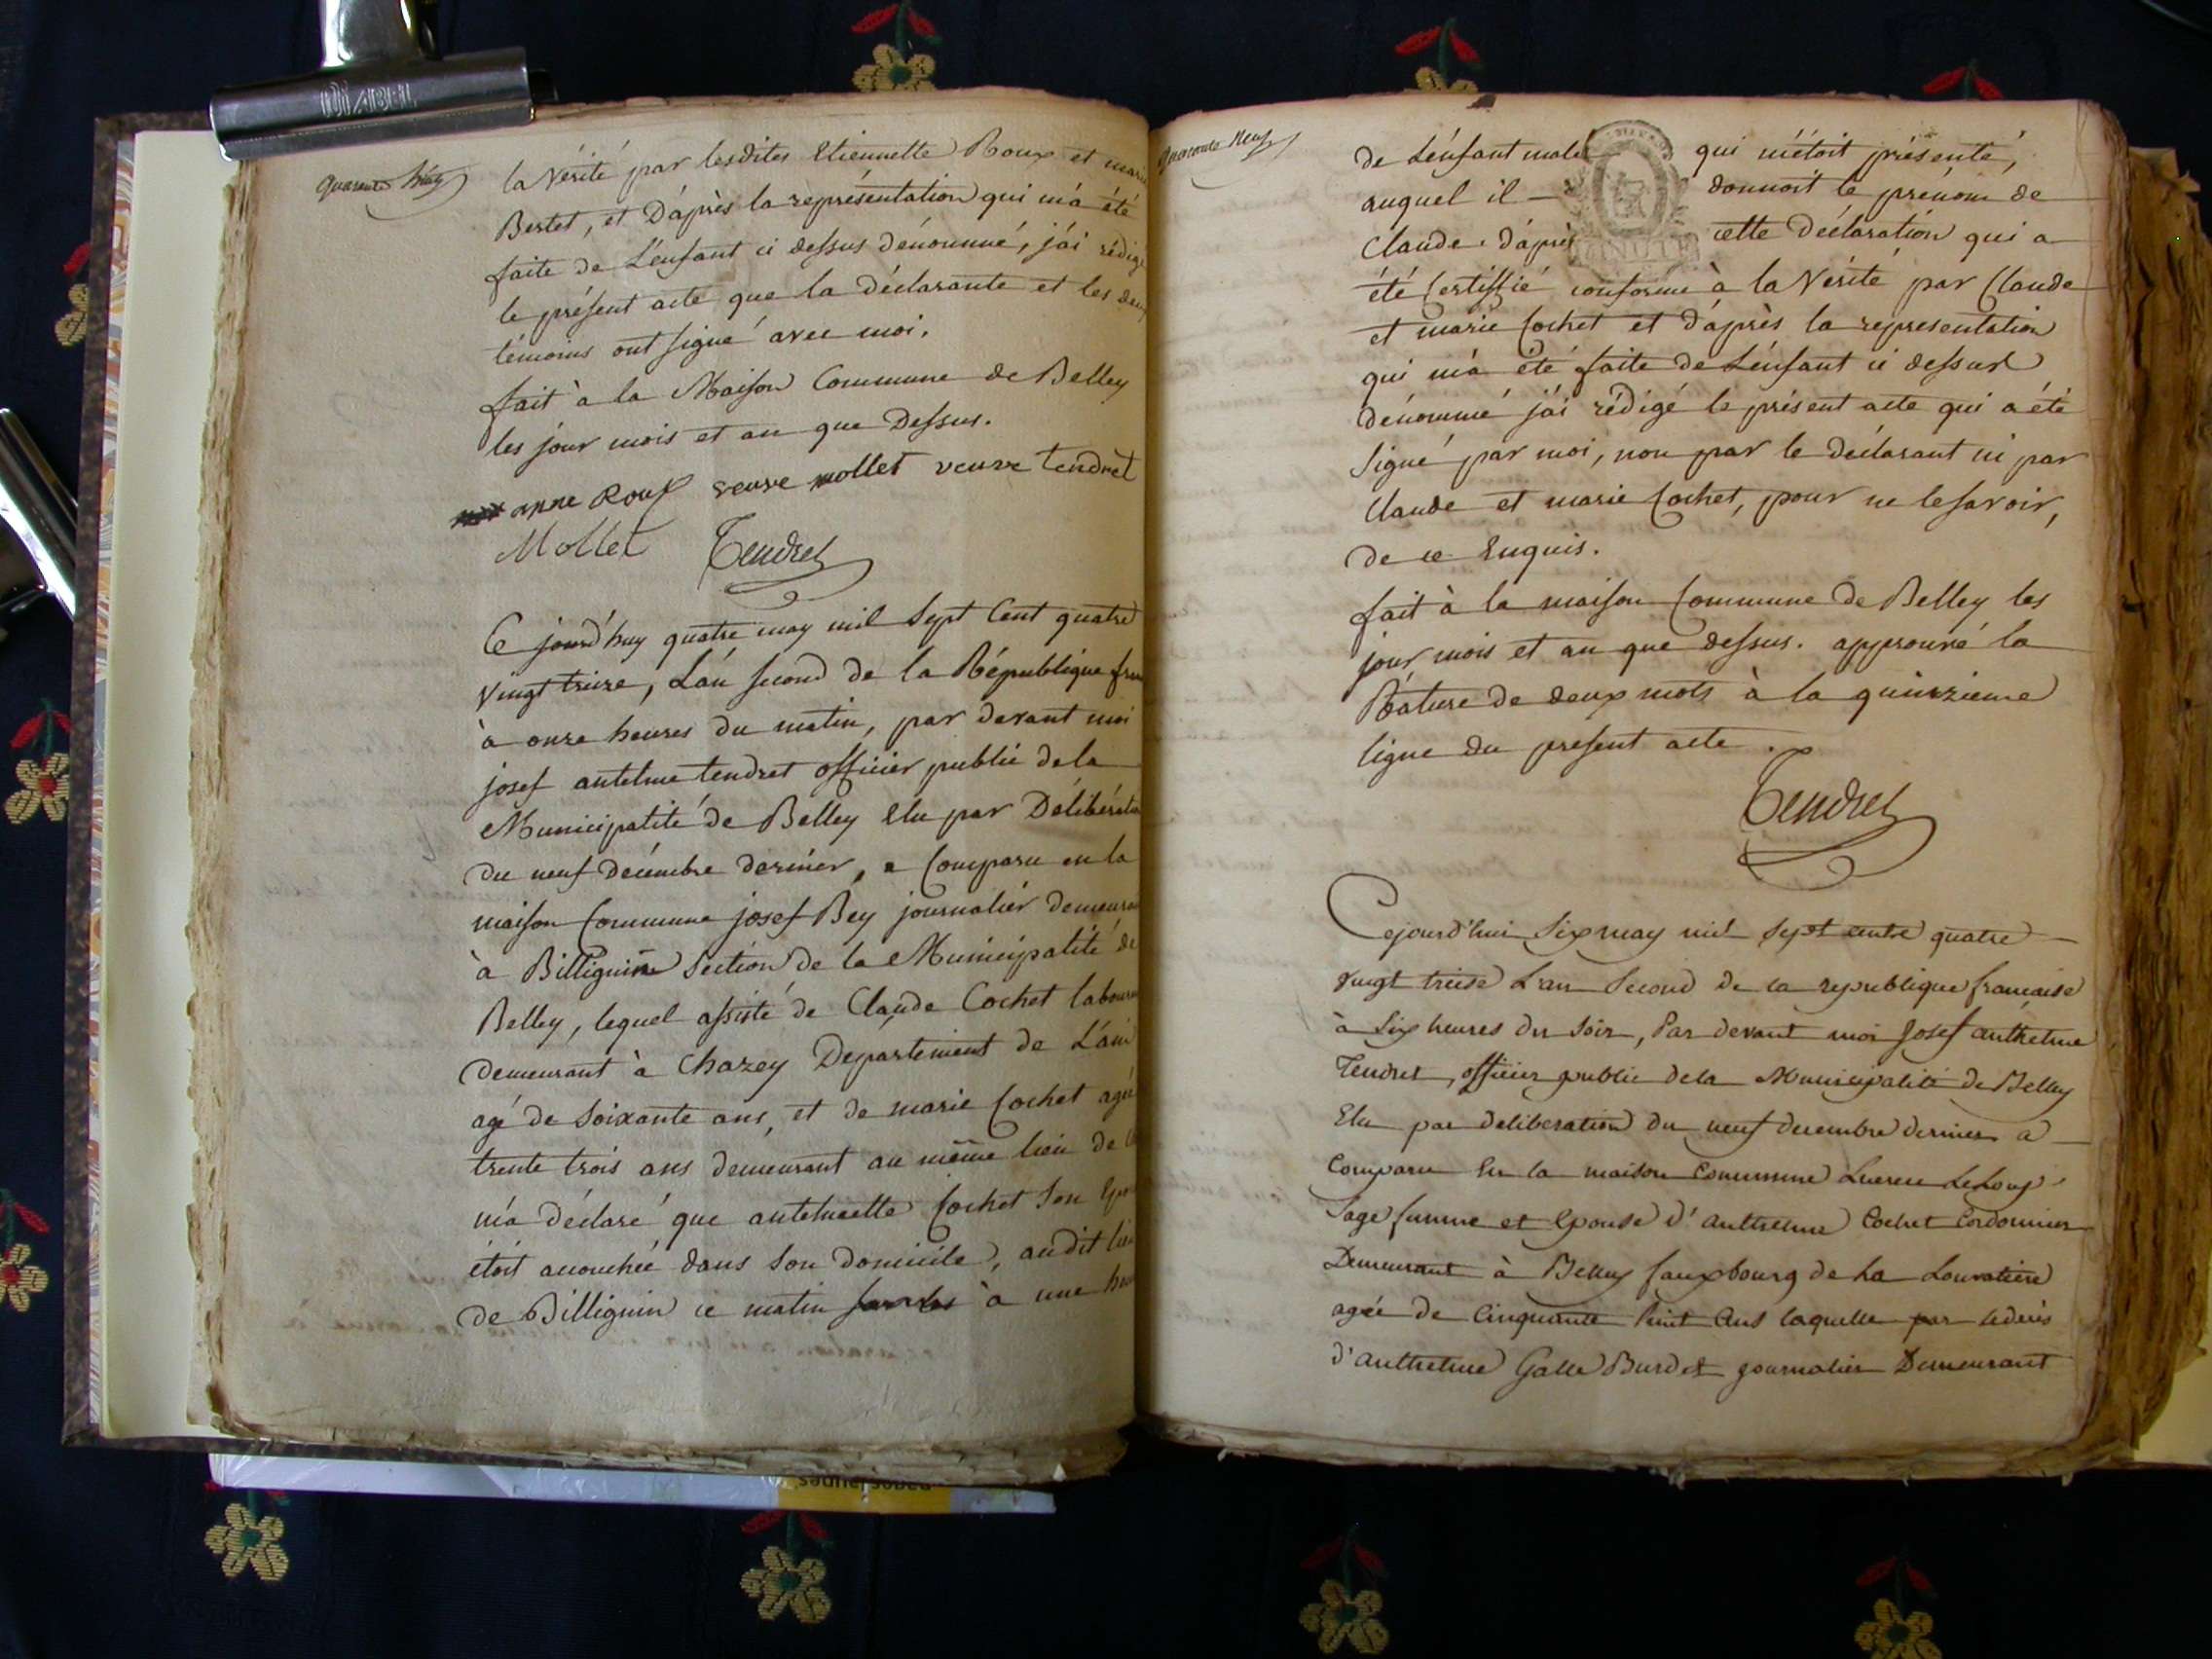 DIABEL
quarante huit
la Vérité par lesdites Etiennette Roux et marie
Bertet, et D'après la représentation qui m'a été
faite de L'enfant ci dessus dénommé, j'ai rédigé
le présent acte que la déclarante et les deux
témoins ont signé avec moi.
fait à la Maison Commune de Belley
les jour mois et an que Dessus.
anne Roux veuve mollet veuve tendret
Mollet Tendret
Ce jourd'huy quatre may mil Sept Cent quatre
Vingt treize, L'an second de la République
à onze heures du matin, par devant moi
josef antelme tendret officier public de la
Municipalité de Belley Elu par Délibération
du neuf décembre dernier, a Comparu en la
maison Commune josef Bey journalier demeurant
à Billignin Section de la Municipalité de
Belley, lequel assisté de Claude Cochet
demeurant à Chazey Département de L'ain
agé de Soixante ans, et de marie Cochet agée
trente trois ans demeurant au même lieu de
m'a déclaré que antelmette Cochet Son
étoit accouchée dans Son domicile, audit lieu
de Billignin ce matin à une
Quarante Neuf
de L'enfant male qui m'étoit présenté,
auquel il donnoit le prénom de
Claude. d'après cette Déclaration qui a
été Certiffié conforme à la Vérité par Claude
et marie Cochet et d'après la representation
qui m'a été faite de L'enfant ci dessus
dénommé j'ai rédigé le présent acte qui a été
Signé par moi, non par le déclarant ni par
Claude et marie Cochet, pour ne le savoir,
de ce Enquis.
fait à la maison Commune de Belley les
jour mois et an que dessus. approuvé la
Rature de deux mots à la quinzieme
ligne du present acte.
Tendret
Cejourd'hui Six may mil Sept cents quatre
vingt treise L'an Second de la republique francaise
à Six heures du Soir, Par devant moi Josef anthelme
Tendret, officier public de la Municipalité de Belley
Elu par deliberation du neuf decembre dernier a
Comparu En la maison Commune
Sage femme et Epouse d'anthelme Cochet Cordonnier
Demeurant à Belley fauxbourg de La
agée de Cinquante huit Ans laquelle par
d'anthelme Galle Burdet journalier Demeurant